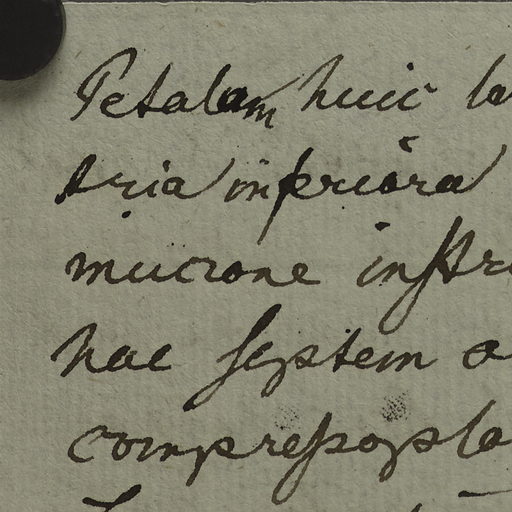 Petalam huic la
tria inferiora
mucrone instr
hac septem a
compressopla